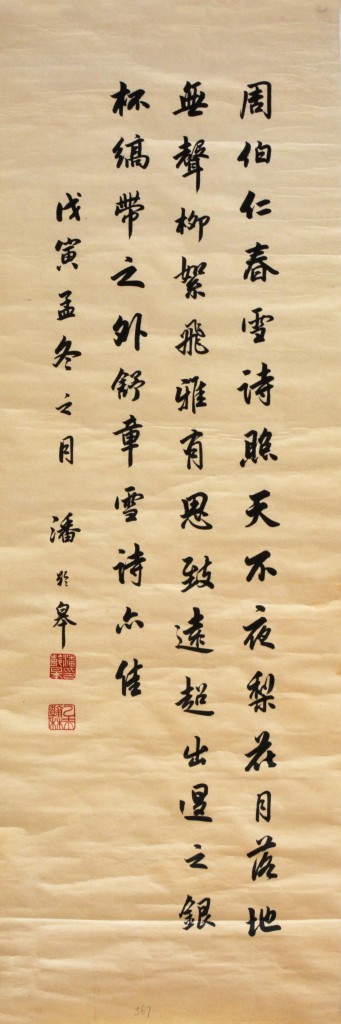 周伯仁春雪詩照天不夜梨花月落地
無聲柳絮飛雅有思致遠超出退之銀
杯縞帶之外舒章雪詩亦佳
戊寅孟冬之月 潘齡皋